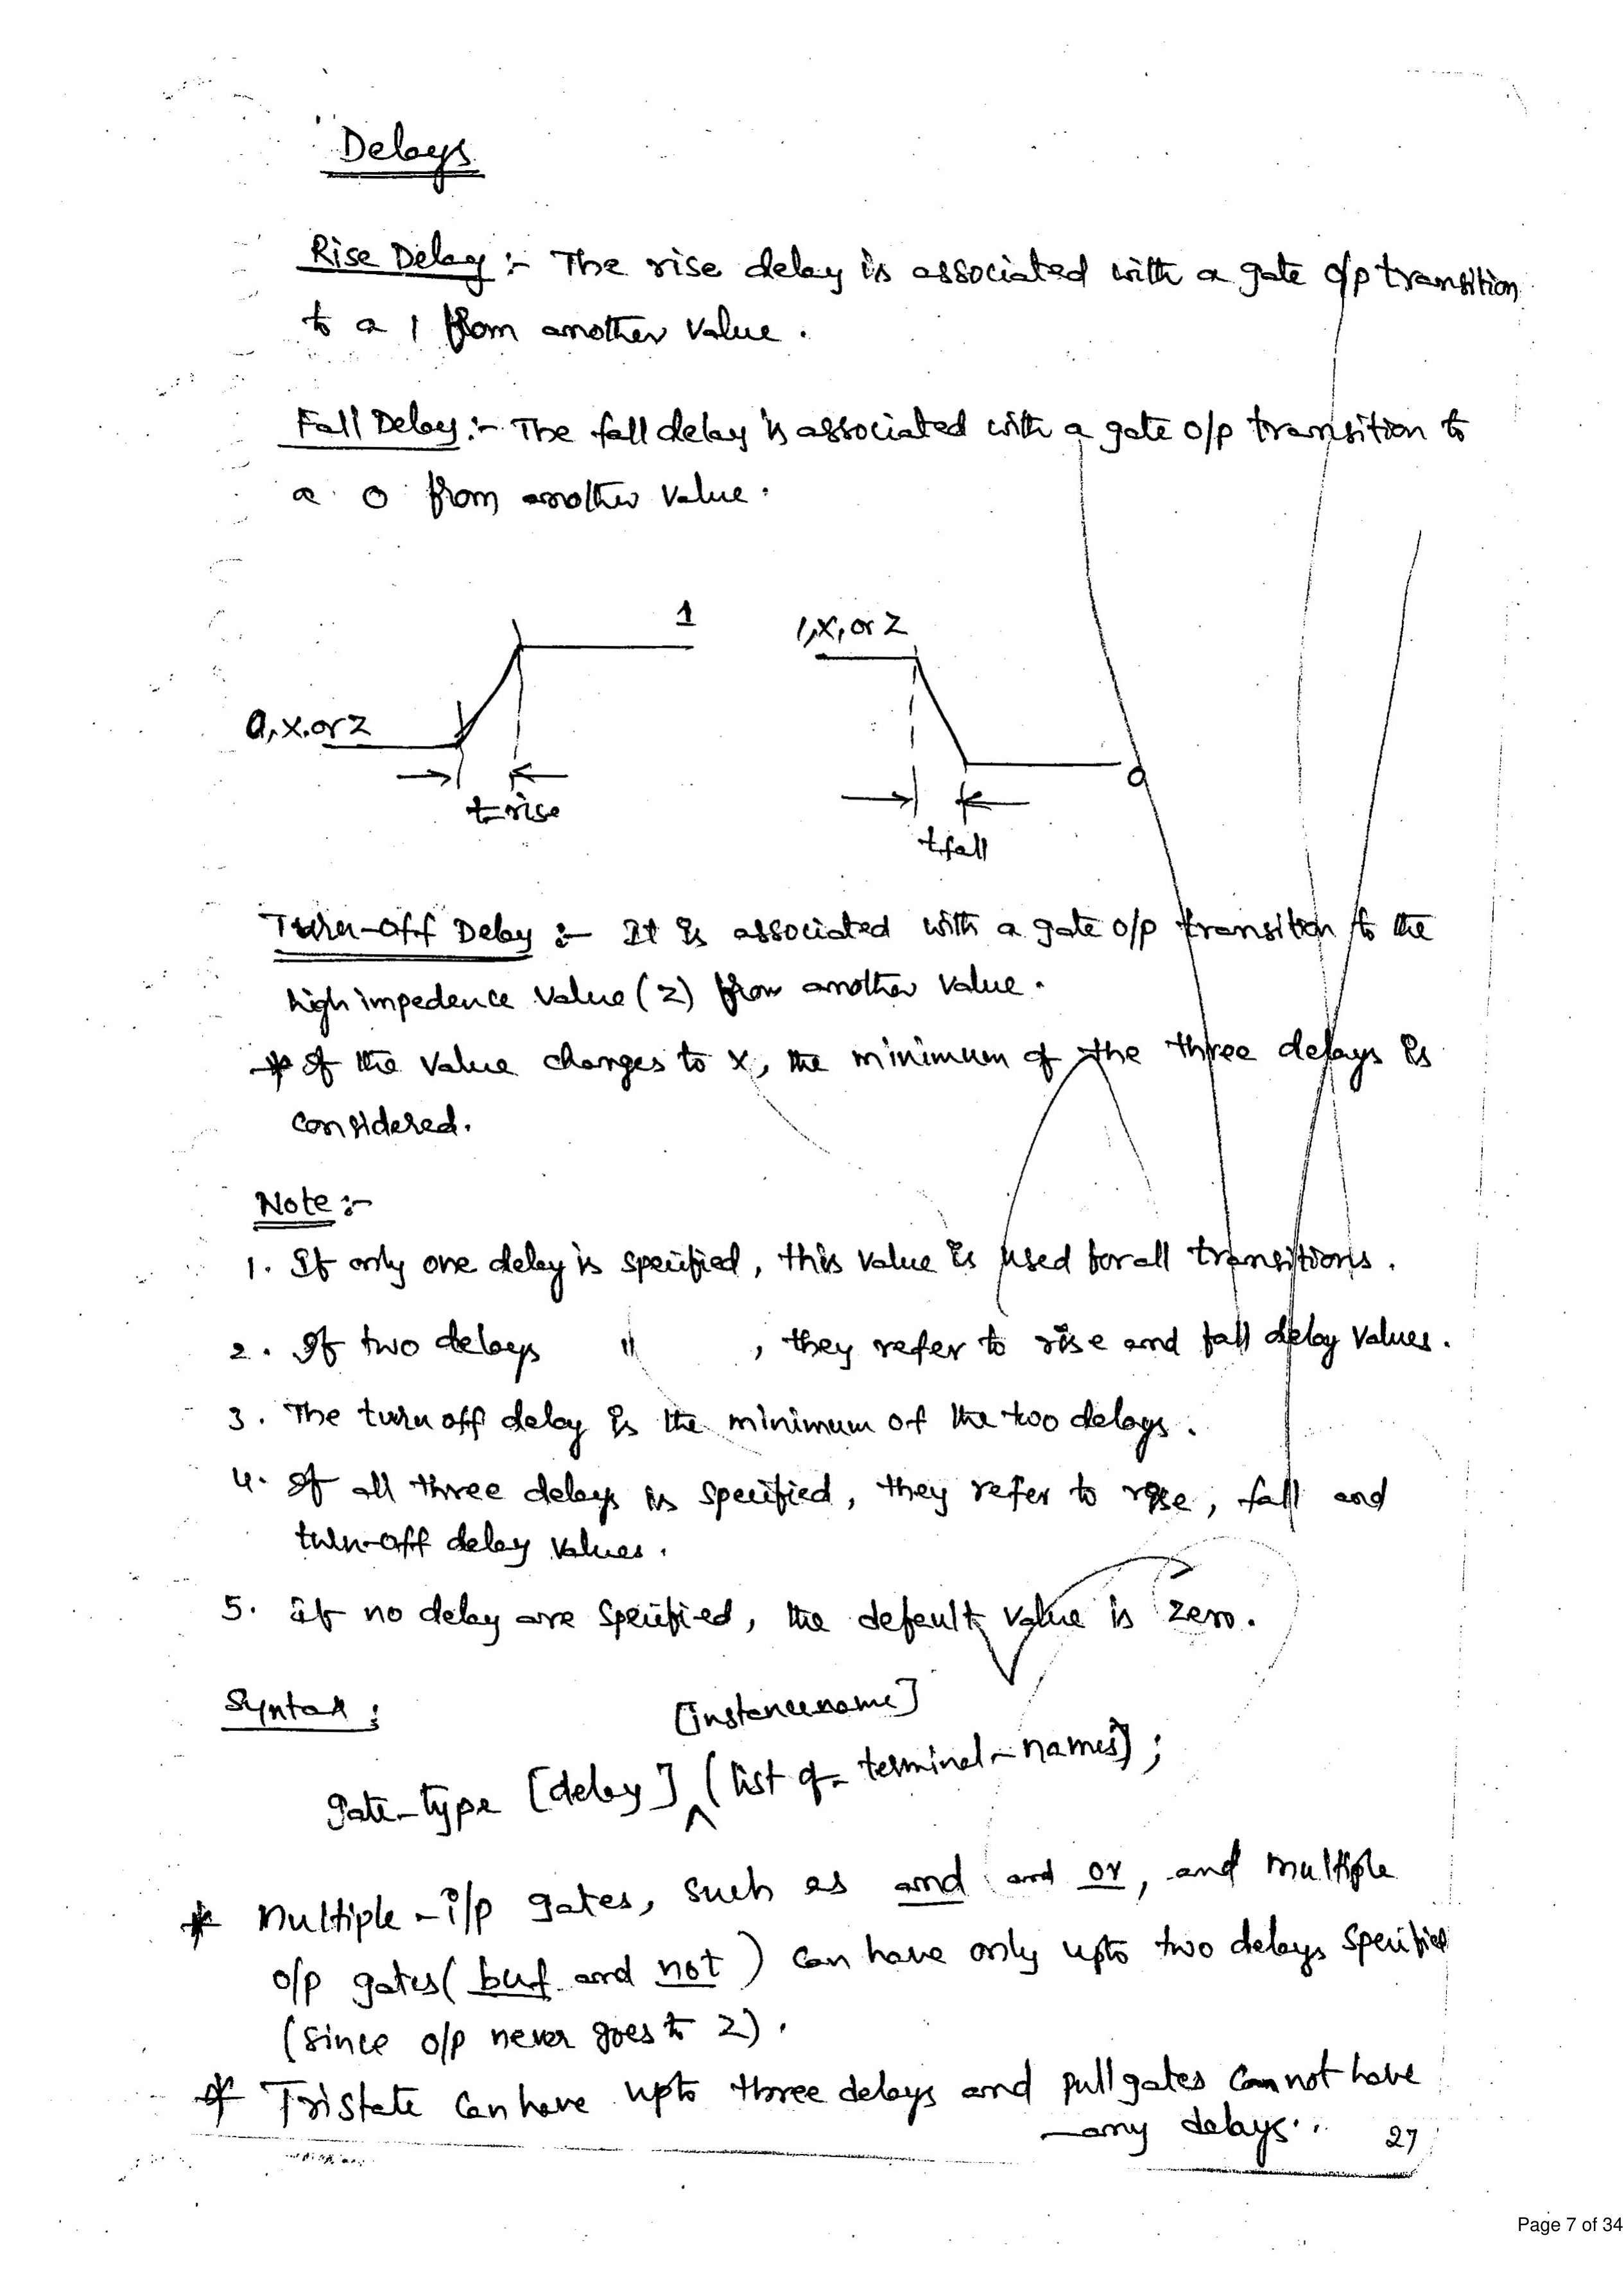 Delays
Rise Delay :- The rise delay is associated with a gate o/p transition
to a 1 from another value.
Fall Delay :- The fall delay is associated with a gate o/p transition to
a 0 from another value.
1
1,x, or z
0,x.or z
0
t-rise
tfall
Turn-off Delay :- It is associated with a gate o/p transition to the
high impedence value (z) from another value.
* If the value changes to x, the minimum of the three delays is
considered.
Note :-
1. If only one delay is specified, this value is used for all transitions.
2. If two delays " , they refer to rise and fall delay values.
3. The turn off delay is the minimum of the two delays.
4. If all three delays is specified, they refer to rise, fall and
turn-off delay values.
5. if no delay are specified, the default value is zero.
Syntax :
[instancename]
gate-type [delay] ^ (list of - terminal - names);
* Multiple - i/p gates, such as and and or, and multiple
o/p gates (buf and not) can have only upto two delays specified
(since o/p never goes to z).
* Tristate can have upto three delays and pull gates cannot have
any delays.
27
Page 7 of 34